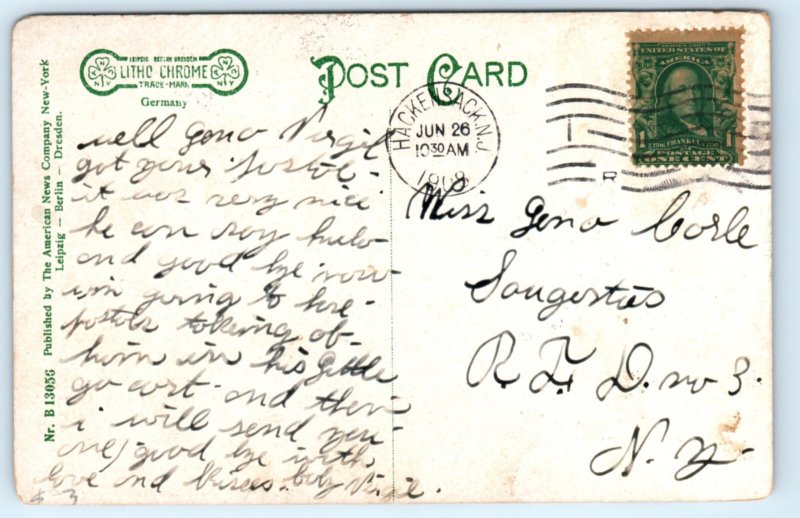 LEIPZIG BERLIN DRESDEN
LITHO CHROME
TRADE-MARK
Germany
POST CARD
Nr. B 13056 Published by The American News Company New-York
Leipzig — Berlin — Dresden.
HACKENSACK, N.J.
JUN 26
10 30 AM
1908
UNITED STATES OF
AMERICA
1
FRANKLIN
POSTAGE
ONE CENT
well Gena Virgil
got your postol
it was very nice
he can say hulo
and good bye now
im going to have
postols taking of
him in his little
go cart and then
i will send you
one) good bye with
love and kisses by Virgil.
Miss Gena Corle
Saugerties
R. F. D. no 3.
N. Y.
$ 3